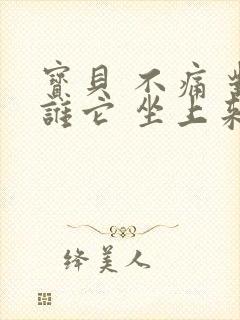 寶貝 不痛
誰它 坐上
绛美人